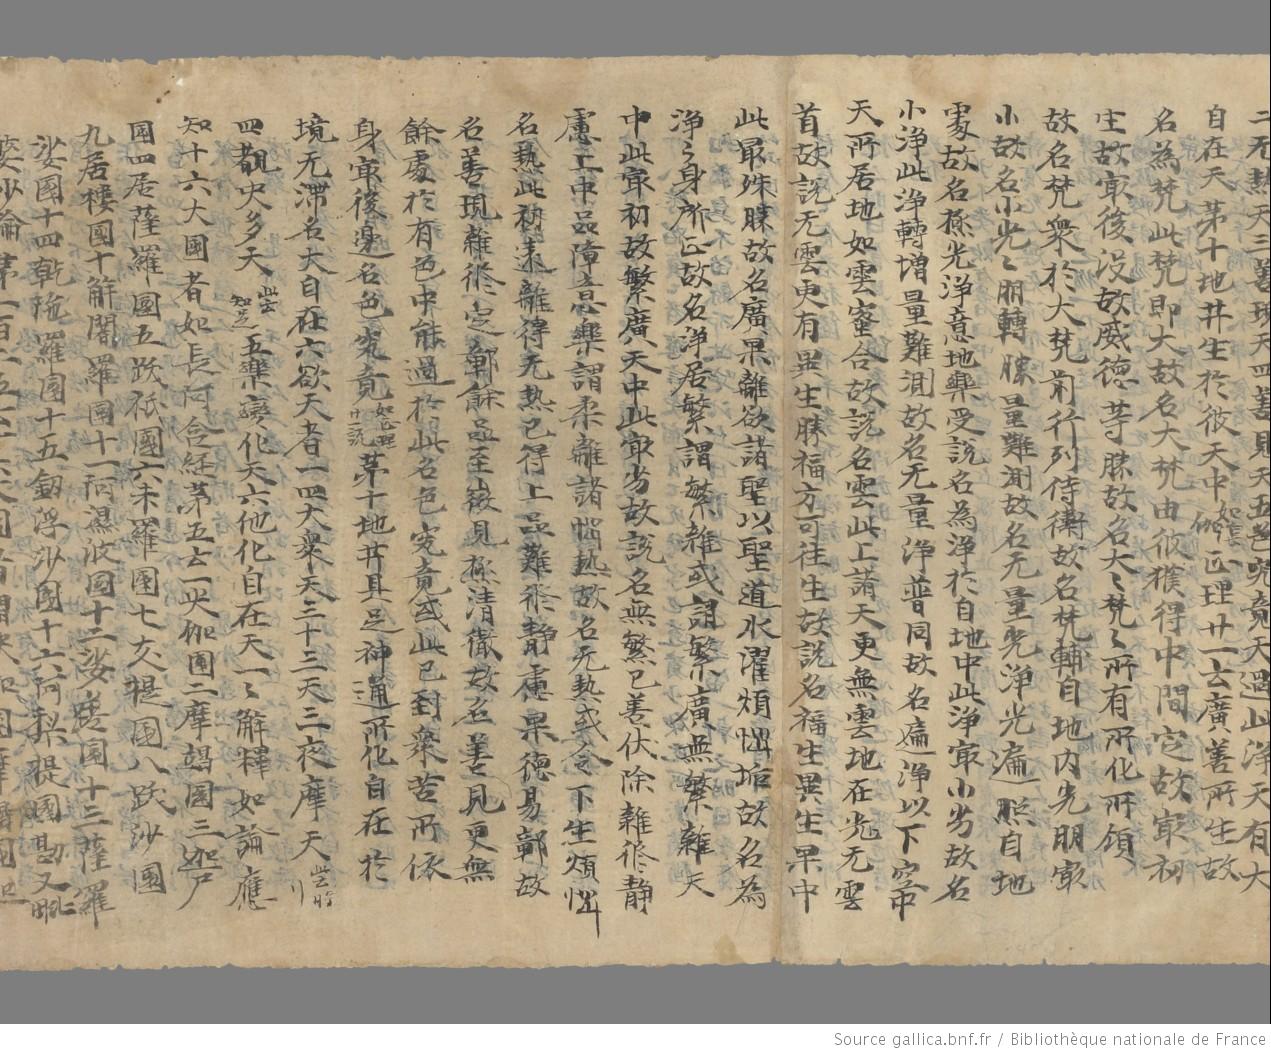 二无熱天三善現天四善見天五色究竟天過此淨天有大
自在天苐十地井生於彼天中如瑜伽正理廿一云廣善所生故
名為梵此梵即大故名大梵由彼獲得中間定故宻初
生故宻後没故威德等勝故名大〻梵〻所有所化所領
故名梵衆於大梵前行列侍衛故名梵輔自地内光明宻
小故名小光〻明轉勝量難測故名无量光淨光遍照自地
處故名極光淨意地樂受説名為淨於自地中此淨宻小劣故名
小淨此淨轉增量難測故名无量淨普同故名遍淨以下空中
天所居地如雲蜜合故説名雲此上諸天更無雲地在光无雲
首故説无雲更有異生勝福方可往生故説名福生異生果中
此最殊勝故名廣果離欲諸聖以聖道水濯煩惱垢故名為
淨〻身所止故名淨居繁謂繁雜或謂繁廣無繁雜天
中此宻初故繁廣天中此宻劣故説名無繁已善伏除雜修靜
慮上中品障意樂調柔離諸惱熱故名无熱或令下生煩惱
名熱此初遠離得无熱已得上品難修靜慮果德易鄣故
名善現雜修定鄣餘品至微見極清徹故名善見更無
餘處於有色中能過於此名色究竟或此已到衆苦所依
身宻後邊名色究竟如正理廿一説苐十地井具足神通所化自在於
境无滯名大自在六欲天者一四大衆天三十三天三夜摩天此云時
四覩史多天此云知足五樂變化天六他化自在天一〻解釋如論應
知十六大國者如長阿含經苐五云一央伽國二摩竭國三迦尸
國四居薩羅國五跋祇國六末羅國七支提國八跋沙國
九居樓國十解闍羅國十一阿濕波國十二娑蹉國十三薩羅
娑國十四乾陁羅國十五釼浮沙國十六阿梨提國勘又毗
婆沙論苐一百